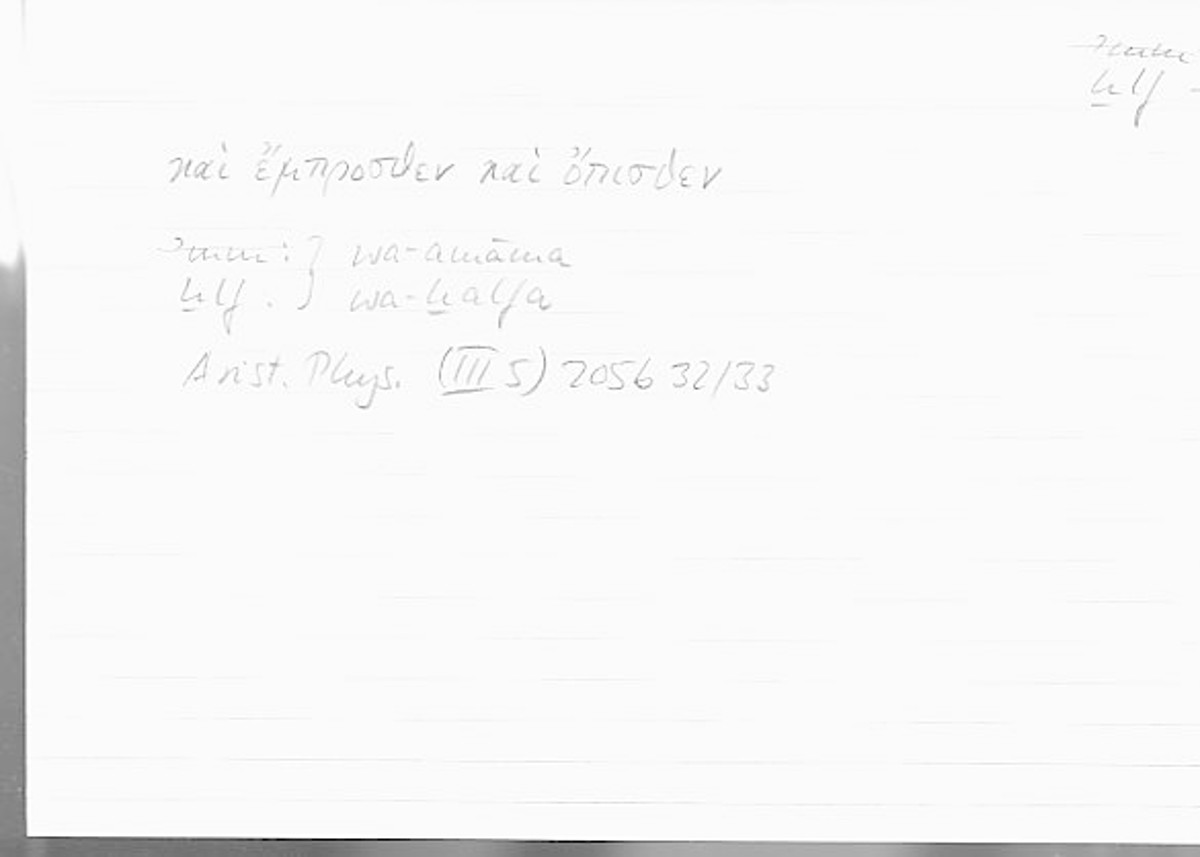 ʾmm
ḫlf -
καὶ ἔμπροσθεν καὶ ὄπισθεν
ʾmm : } wa-amāma
ḫlf . } wa-ḫalfa
Arist. Phys. (III 5) 205b 32/33